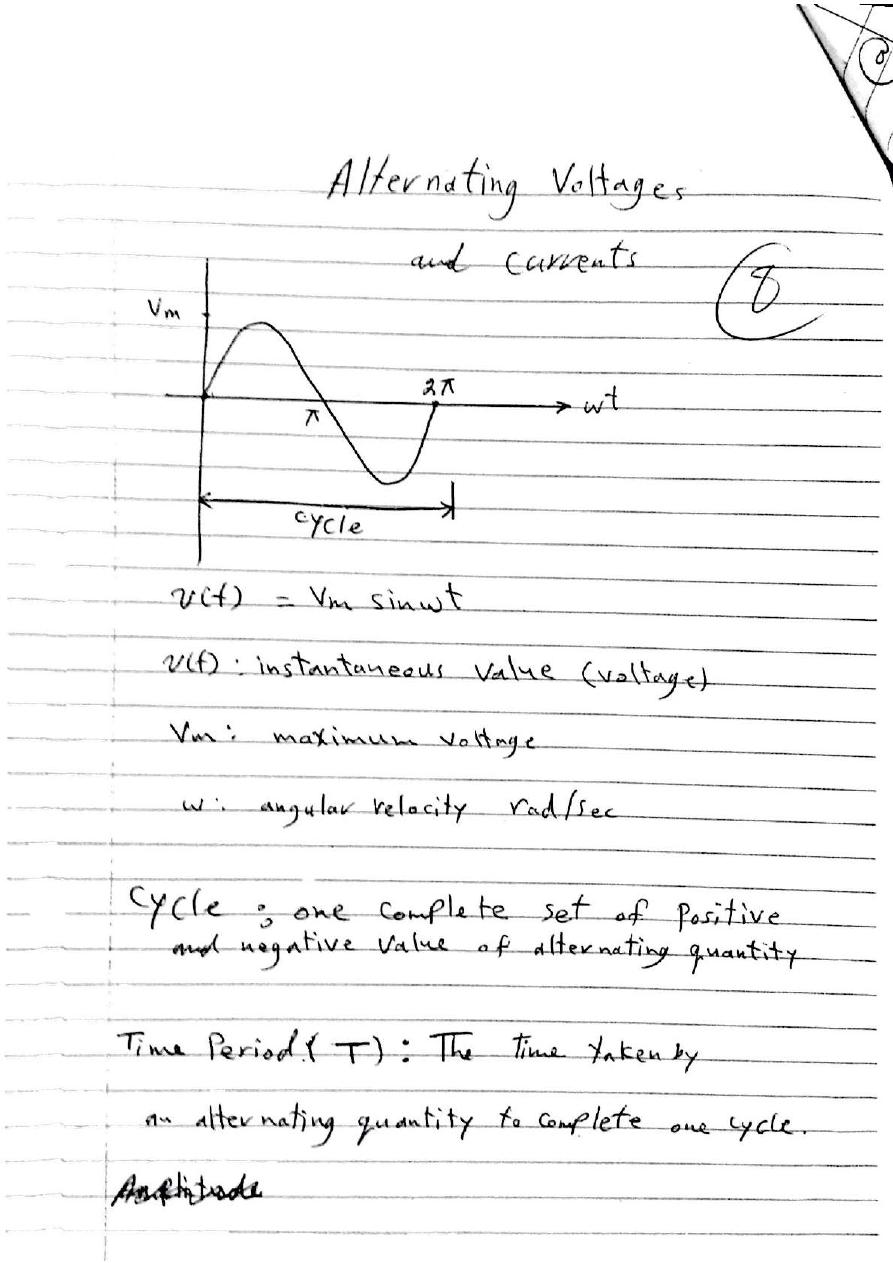 8
Alternating Voltages
and currents
8
Vm
2π
π
wt
cycle
v(t) = Vm sinwt
v(t) : instantaneous value (voltage)
Vm : maximum voltage
w : angular velocity rad/sec
Cycle : one complete set of positive
and negative value of alternating quantity
Time Period (T) : The time taken by
an alternating quantity to complete one cycle.
Amplitude